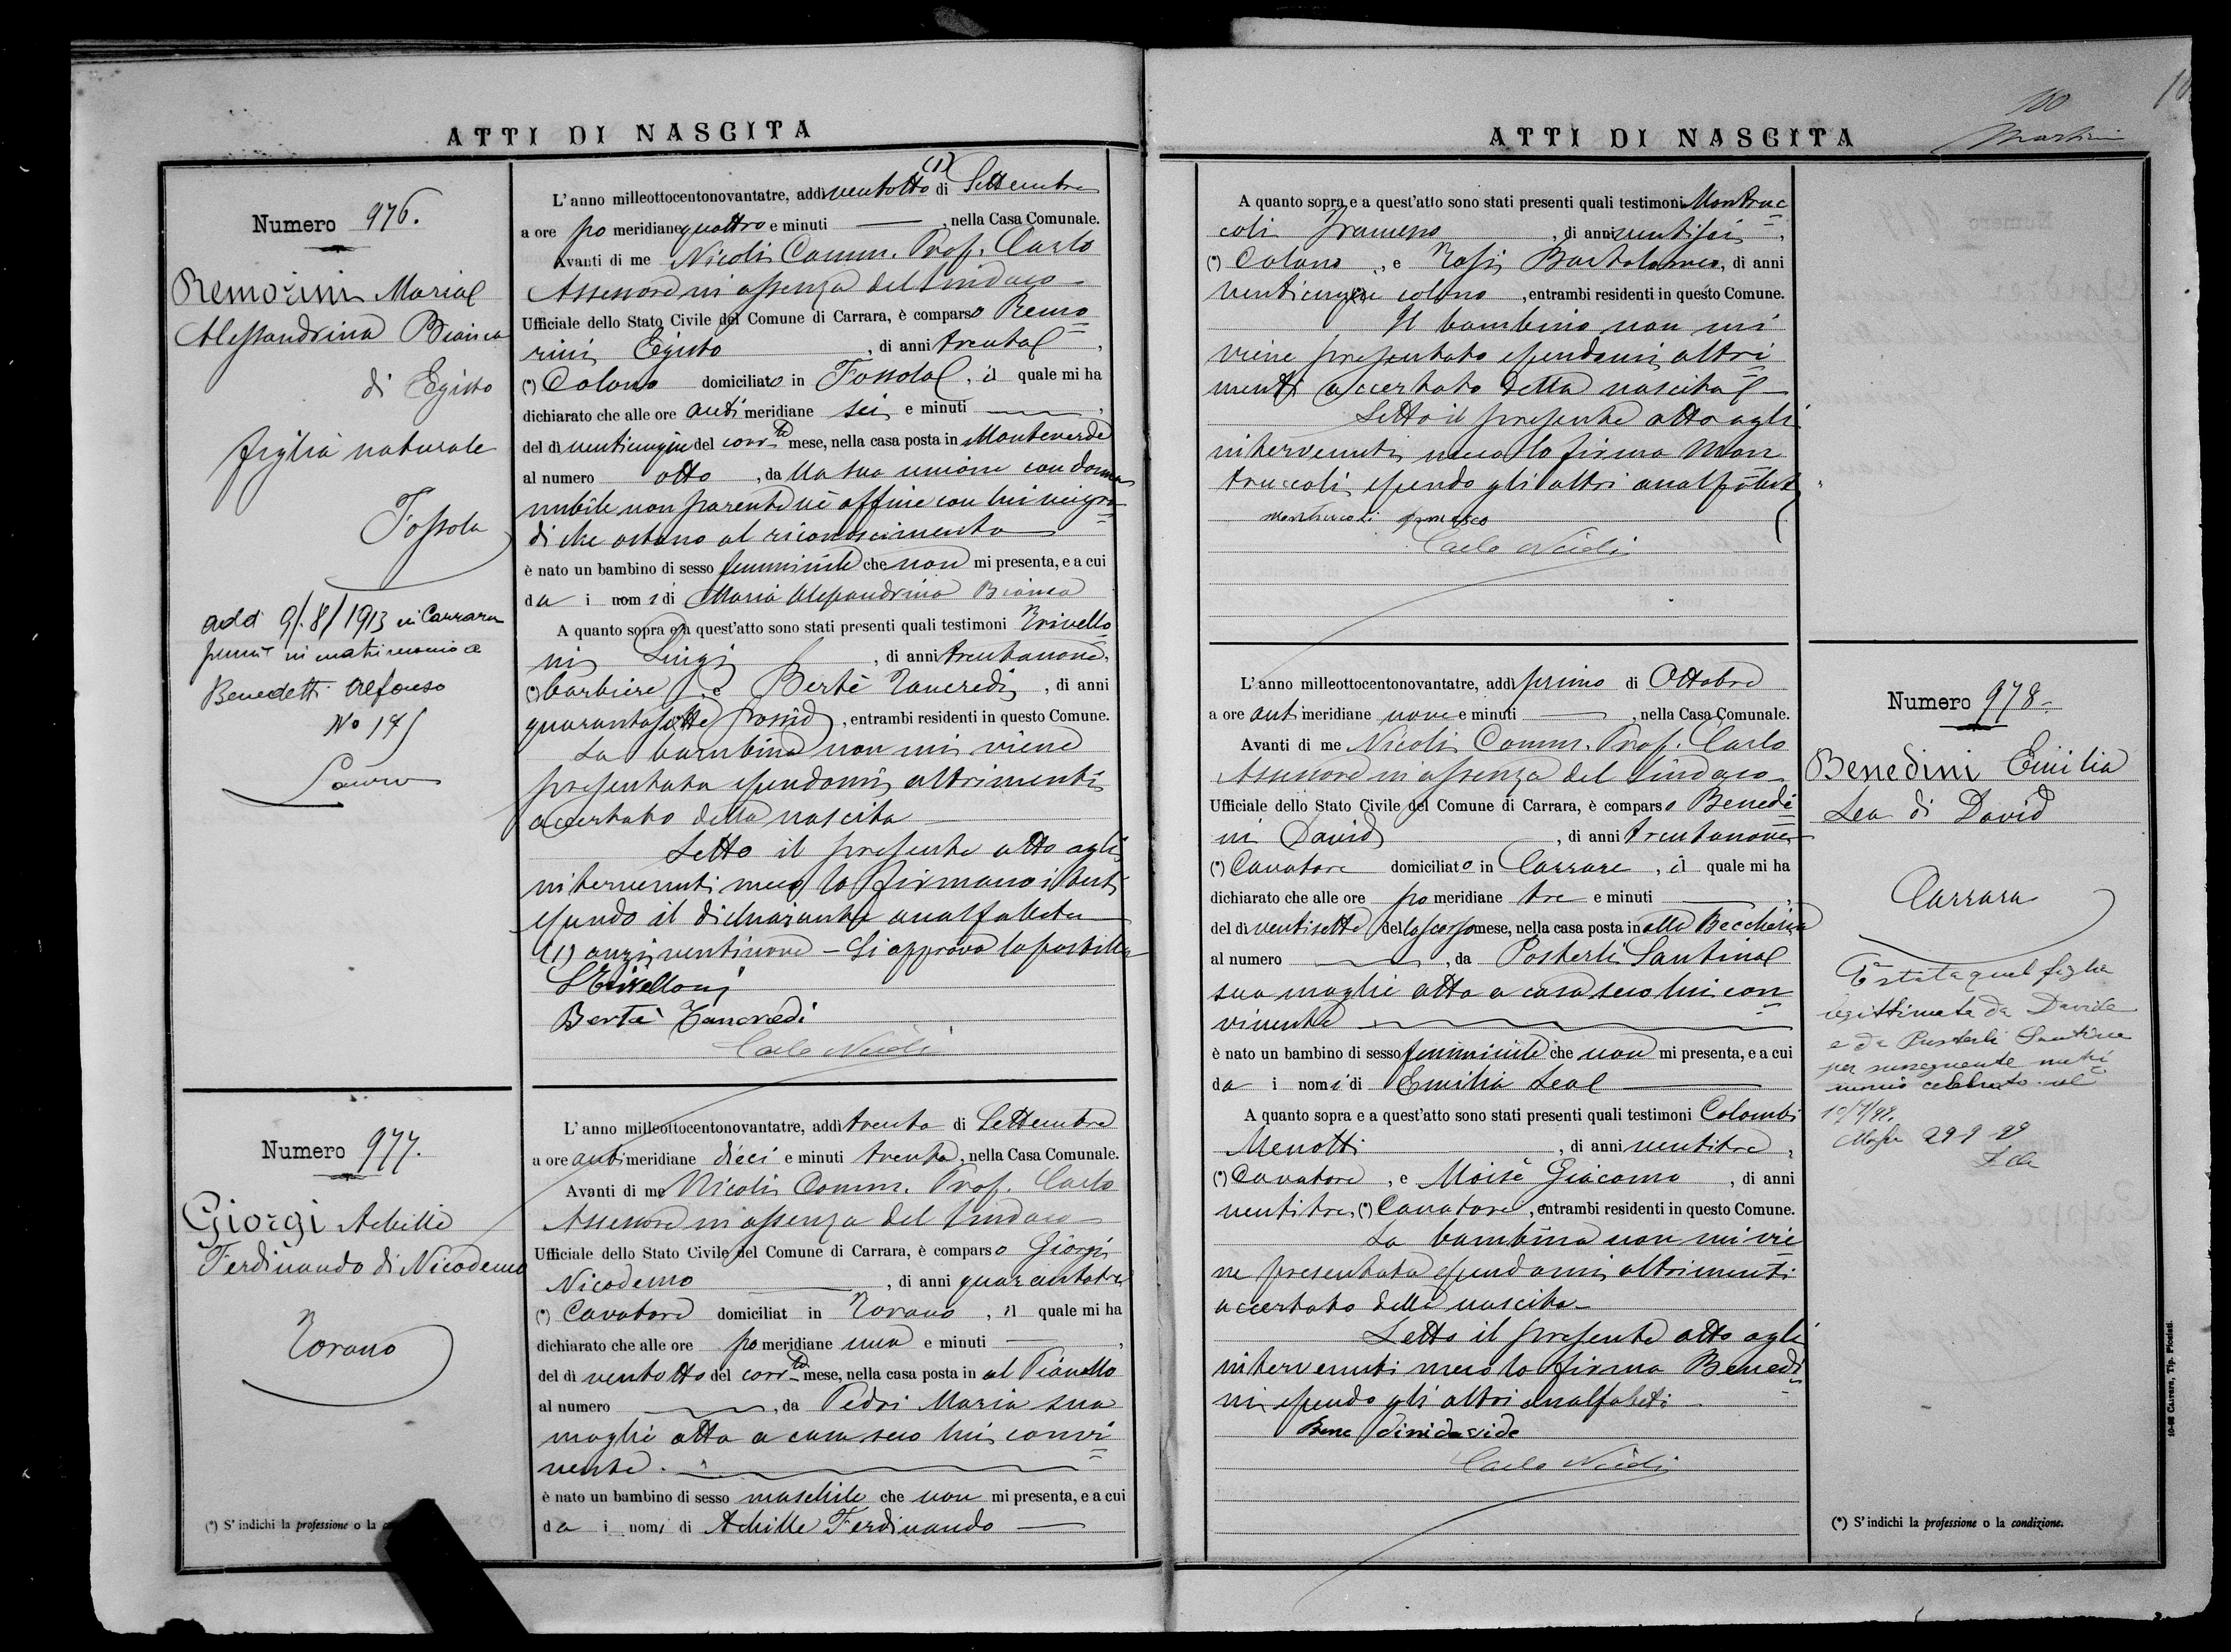 ATTI DI NASCITA
Numero 976.
Remorini Maria
Alessandrina Bianca
di Egisto
figlia naturale
Fossola
addì 9/8/1913 in Carrara
in matrimonio a
Benedetti Alfonso
No 175
L'anno milleottocentonovantatre, addì ventotto (1) di Settembre
a ore po meridiane quattro e minuti — , nella Casa Comunale.
Avanti di me Nicoli Comm. Prof. Carlo
Assessore in assenza del Sindaco
Ufficiale dello Stato Civile del Comune di Carrara, è comparso Remo=
rini Egisto , di anni trenta ,
(*) Colono domiciliato in Fossola , il quale mi ha
dichiarato che alle ore anti meridiane sei e minuti — ,
del dì venticinque del corrte mese, nella casa posta in Monteverde
al numero otto , da lla sua unione con donna
nubile non parente nè affine con lui nei gra=
di che ostano al riconoscimento
è nato un bambino di sesso femminile che non mi presenta, e a cui
da i nomi di Maria Alessandrina Bianca
A quanto sopra e a quest'atto sono stati presenti quali testimoni Trivello=
ni Luigi , di anni trentanove,
(*) barbiere , e Bertè Tancredi , di anni
quarantasette possid. , entrambi residenti in questo Comune.
La bambina non mi viene
presentata essendomi altrimenti
accertato della nascita
Letto il presente atto agli
intervenuti meco lo firmano i testi
essendo il dichiarante analfabeta
(1) anzi ventinove – Si approva la postilla
L Trivelloni
Bertè Tancredi
Carlo Nicoli
Numero 977.
Giorgi Achille
Ferdinando di Nicodemo
Torano
L'anno milleottocentonovantatre, addì trenta di Settembre
a ore anti meridiane dieci e minuti trenta, nella Casa Comunale.
Avanti di me Nicoli Comm. Prof. Carlo
Assessore in assenza del Sindaco
Ufficiale dello Stato Civile del Comune di Carrara, è comparso Giorgi
Nicodemo , di anni quarantatre
(*) Cavatore domiciliat in Torano , il quale mi ha
dichiarato che alle ore po meridiane una e minuti — ,
del dì ventotto del corrte mese, nella casa posta in al Pianello
al numero — , da Pedri Maria sua
moglie atta a casa seco lui convi=
vente.
è nato un bambino di sesso maschile che non mi presenta, e a cui
da i nomi di Achille Ferdinando —
(*) S'indichi la professione o la
100
Martini
ATTI DI NASCITA
A quanto sopra e a quest'atto sono stati presenti quali testimoni Montruc=
coli Francesco , di anni ventisei ,
(*) Colono , e Rossi Bartolomeo, di anni
venticinque colono , entrambi residenti in questo Comune.
Il bambino non mi
viene presentato essendomi altri=
menti accertato della nascita
Letto il presente atto agli
intervenuti meco lo firma Mon
truccoli essendo gli altri analfabeti
montruccoli francesco
Carlo Nicoli
L'anno milleottocentonovantatre, addì primo di Ottobre
a ore anti meridiane nove e minuti — , nella Casa Comunale.
Avanti di me Nicoli Comm. Prof. Carlo
Assessore in assenza del Sindaco
Ufficiale dello Stato Civile del Comune di Carrara, è comparso Benedi=
ni David , di anni trentanove
(*) Cavatore domiciliato in Carrara , il quale mi ha
dichiarato che alle ore po meridiane tre e minuti — ,
del dì ventisette dello scorso mese, nella casa posta in alla Beccheria
al numero — , da Posterli Santina
sua moglie atta a casa seco lui con=
vivente
è nato un bambino di sesso femminile che non mi presenta, e a cui
da i nomi di Emilia Lea —
A quanto sopra e a quest'atto sono stati presenti quali testimoni Colombi
Menotti , di anni ventitre ,
(*) Cavatore , e Moisè Giacomo , di anni
ventitre, (*) Cavatore , entrambi residenti in questo Comune.
La bambina non mi vie
ne presentata essendomi altrimenti
accertato della nascita
Letto il presente atto agli
intervenuti meco lo firma Benedi=
ni essendo gli altri analfabeti.
Bene dinidavide
Carlo Nicoli
Numero 978.
Benedini Emilia
Lea di David
Carrara
È stata qual figlia
legittimata da Davide
e da Posterli Santina
per susseguente matri=
monio celebrato il
29 9 99
(*) S'indichi la professione o la condizione.
10-92 Carrara, Tip. Picciati.